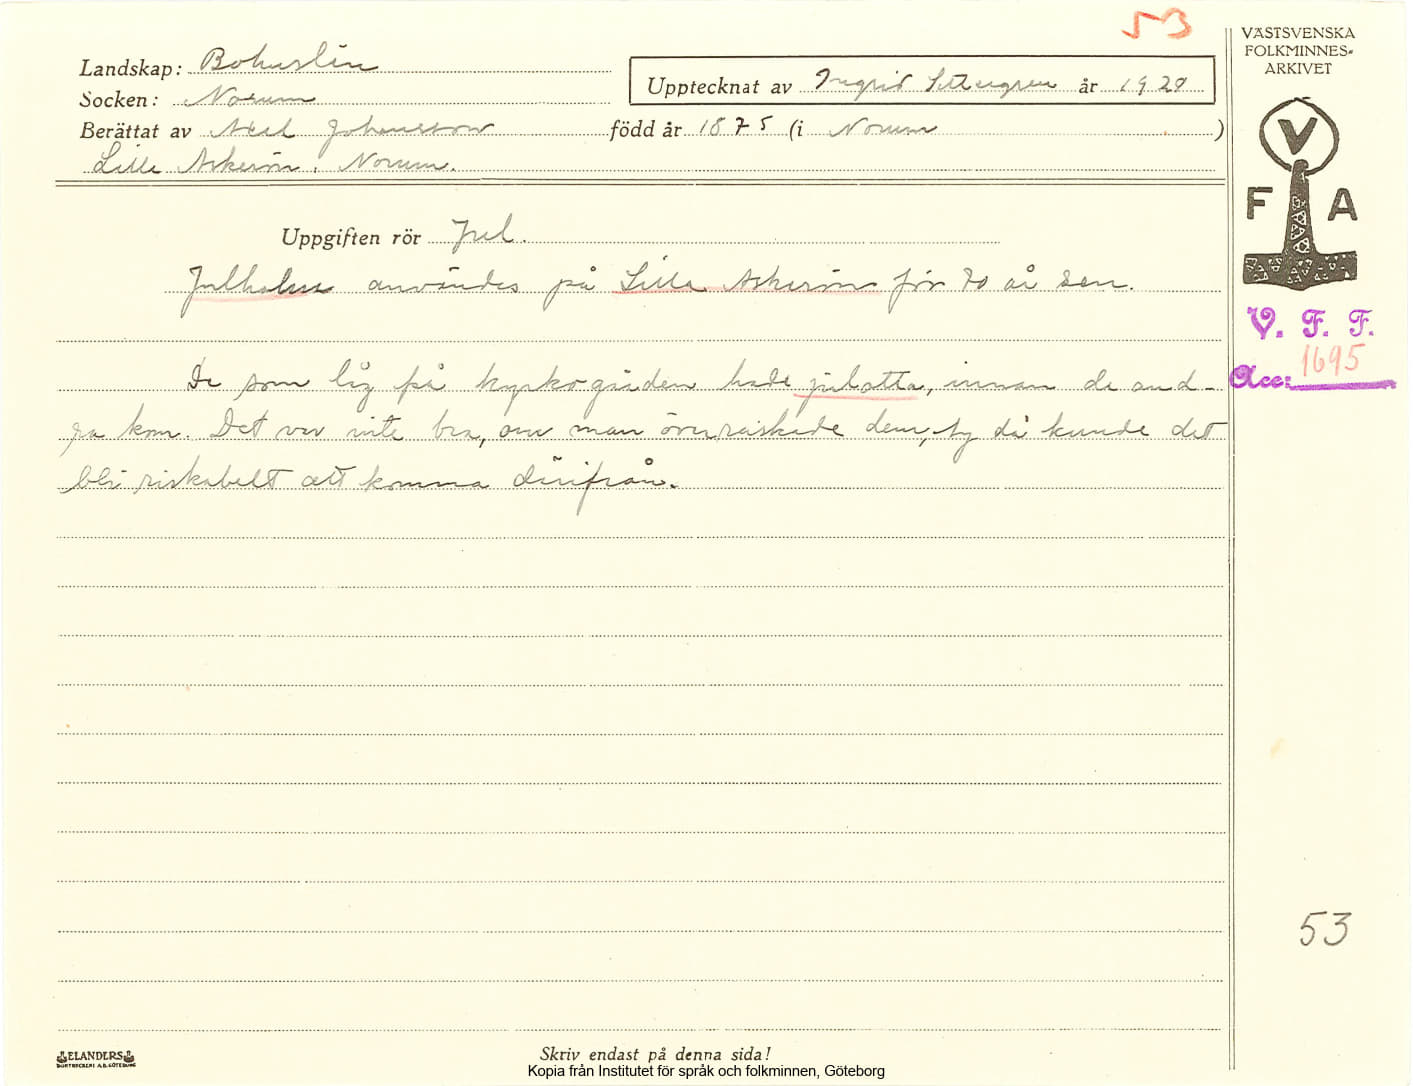 53
VÄSTSVENSKA
FOLKMINNES-
ARKIVET
Landskap: Bohuslän
Upptecknat av Ingrid Settergren år 1928
Socken: Norum
Berättat av Axel Johansson född år 1875 (i Norum )
Lille Askerön, Norum.
V
F A
Uppgiften rör Jul.
Julhalm användes på Lilla Askerön för 70 år sen.
V. F. F.
Acc: 1695
De som låg på kyrkogården hade julotta, innan de and-
ra kom. Det var inte bra, om man överraskade dem, ty då kunde det
bli riskabelt att komma därifrån.
53
ELANDERS
BOKTRYCKERI A.B. GÖTEBORG
Skriv endast på denna sida!
Kopia från Institutet för språk och folkminnen, Göteborg